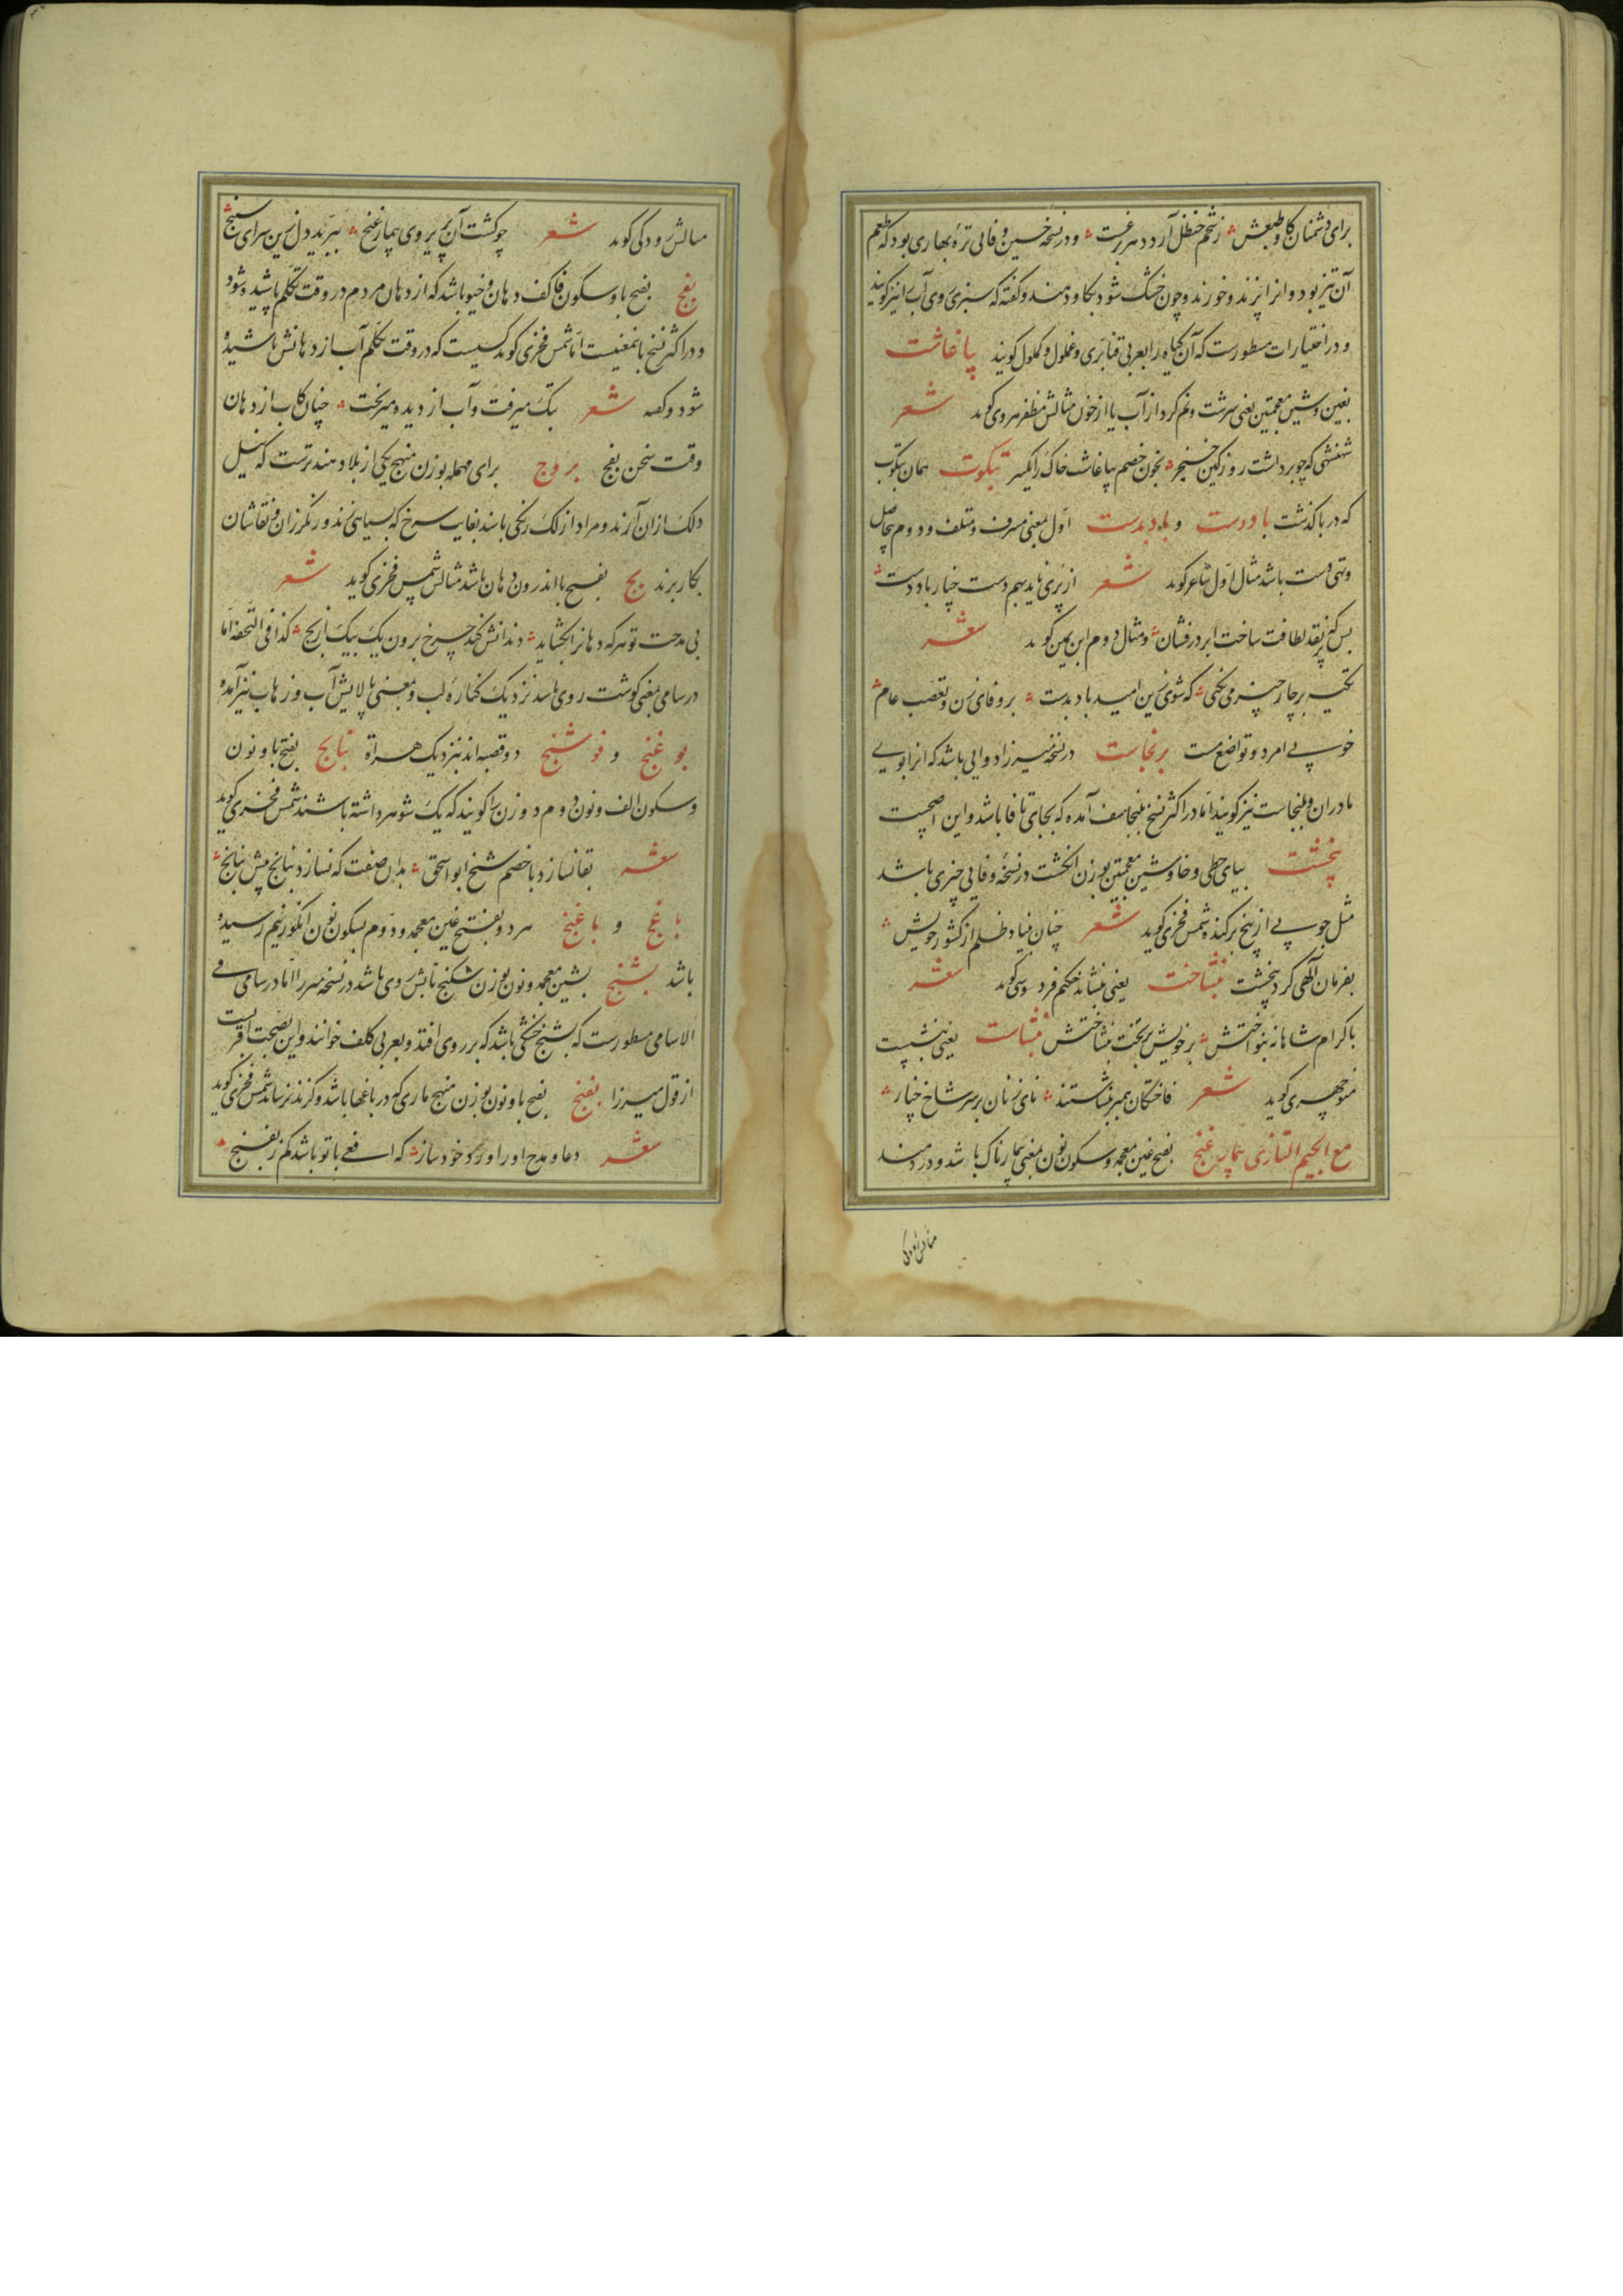 برای دشمنان کاو طبعش ؞ زتخم حنظل آرد در بر برغست ؞ و در نسخه حسین وفائی تره بهاری بود که طعم
آن تیز بود و انرا پزند و خورند و چون خشک شود بکاو دهند و کفته که سبزی روی آب را نیز کویند
و در اختیارات مسطورست که آن کیاه را بعربی قنابری و غملول و کملول کویند پاغاشت
بغین و شین معجمتین یعنی سرشت و نم کرد از آب یا از خون مثالش مظفر هروی کوید شعر
شهنشهی که چو برداشت روز کین خنجر ؞ بخون خصم بپاغاشت خاک را یکسر بتکوت همان بتکوب
که در با کذشت باددست و بادبدست اول بمعنی مسرف و متلف و دوم بیحاصل
و تهی دست باشد مثال اول شاعر کوید شعر از پری ناید بهم دست چنار باددست ؞
بس که بر نقد لطافت ساخت ابر درفشان ؞ و مثال دوم ابن یمین کوید شعر
تکیه بر چار چیز می نکنی ؞ که شوی زین امید باد بدست ؞ بر وفای زن و تعصب عام ؞
خوبی امرد و تواضع مست برنجاست در نسخه میرزا دوایی باشد که انرا بوی
مادران و بلنجاست نیز کویند اما در اکثر نسخ بلنجاسف آمده که بجای تا فا باشد و این اصحست
پیخشت ببای حطی و خا و شین معجمتین بوزن انکشت در نسخه وفایی چیزی باشد
مثل چوبی از بیخ برکنده شمس فخری کوید شعر چنان بنیاد ظلم از کشور خویش ؞
بفرمان الهی کرد پیخشت بنشاخت یعنی بنشاند حکیم فردوسی کوید شعر
باکرام شاهانه بنواختش ؞ بر خویش بر تخت بنشاختش بنشاست یعنی بنشست
منوچهری کوید شعر فاختکان همبر بنشاستند ؞ نای زنان بر سر شاخ چنار ؞
مع الجیم التازی بیمار غنج بفتح غین معجمه و سکون نون بمعنی بیمارناک باشد و دردمند
مثالش رودکی
مثالش رودکی کوید شعر چو کشت آن پریروی بیمار غنج ؞ ببرید دل زین سرای سپنج ؞
بفج بفتح با و سکون فا کف دهان و خیو باشد که از دهان مردم در وقت تکلم پاشیده شود
و در اکثر نسخ بانمعنیست اما شمس فخری کوید کسیست که در وقت تکلم آب از دهانش پاشیده
شود و کفته شعر بتک میرفت و آب از دیده میریخت ؞ چنان کاب از دهان
وقت سخن بفج بروج برای مهمله بوزن منهج یکی از بلاد هندترست که نیل
و لک ازان آرند و مراد از لک رنکی باشد بغایت سرخ که بسیاهی زند و رنکرزان و نقاشان
بکار برند بج بفتح با اندرون دهان باشد مثالش شمس فخری کوید شعر
بی مدحت تو هر که دهانرا بکشاید ؞ دندانش کند چرخ برون یک بیک از بج ؞ کذا فی التحفه اما
در سامی بمعنی کوشت روی باشد نزدیک کناره لب و بمعنی پالایش آب و زهاب نیز آمده
بوغنج و فوشنج دو قصبه اند نزدیک هراة بنانج بفتح با و نون
و سکون الف و نون دوم دو زن را کویند که یک شوهر داشته باشند شمس فخری کوید
شعر بقا نسازد با خصم شیخ ابو اسحق ؞ بدان صفت که نسازد بنانج پیش بنانج ؞
باغج و باغنج هر دو بفتح غین معجمه و دوم بسکون نون انکور نیم رسیده
باشد بشنج بشین معجمه و نون بوزن شکنج تابش روی باشد در نسخه میرزا اما در سامی فی
الاسامی مسطورست که بشنج خشکی باشد که بر روی افتد و بعربی کلف خوانند و این بصحت اقربست
از قول میرزا بفنج بفتح با و نون بوزن منهج ماری که در باغها باشد و کزند نرساند شمس فخری کوید
شعر دعا و مدح او را ورد خود ساز ؞ که افعی با تو باشد کم ز بفنج ؞